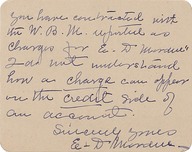 you have contracted with
the W. B. M. reported as
charges for E. D. Mordue"
I do not understand
how a charge can appear
on the credit side of
an account.
Sincerely yours
E. D.